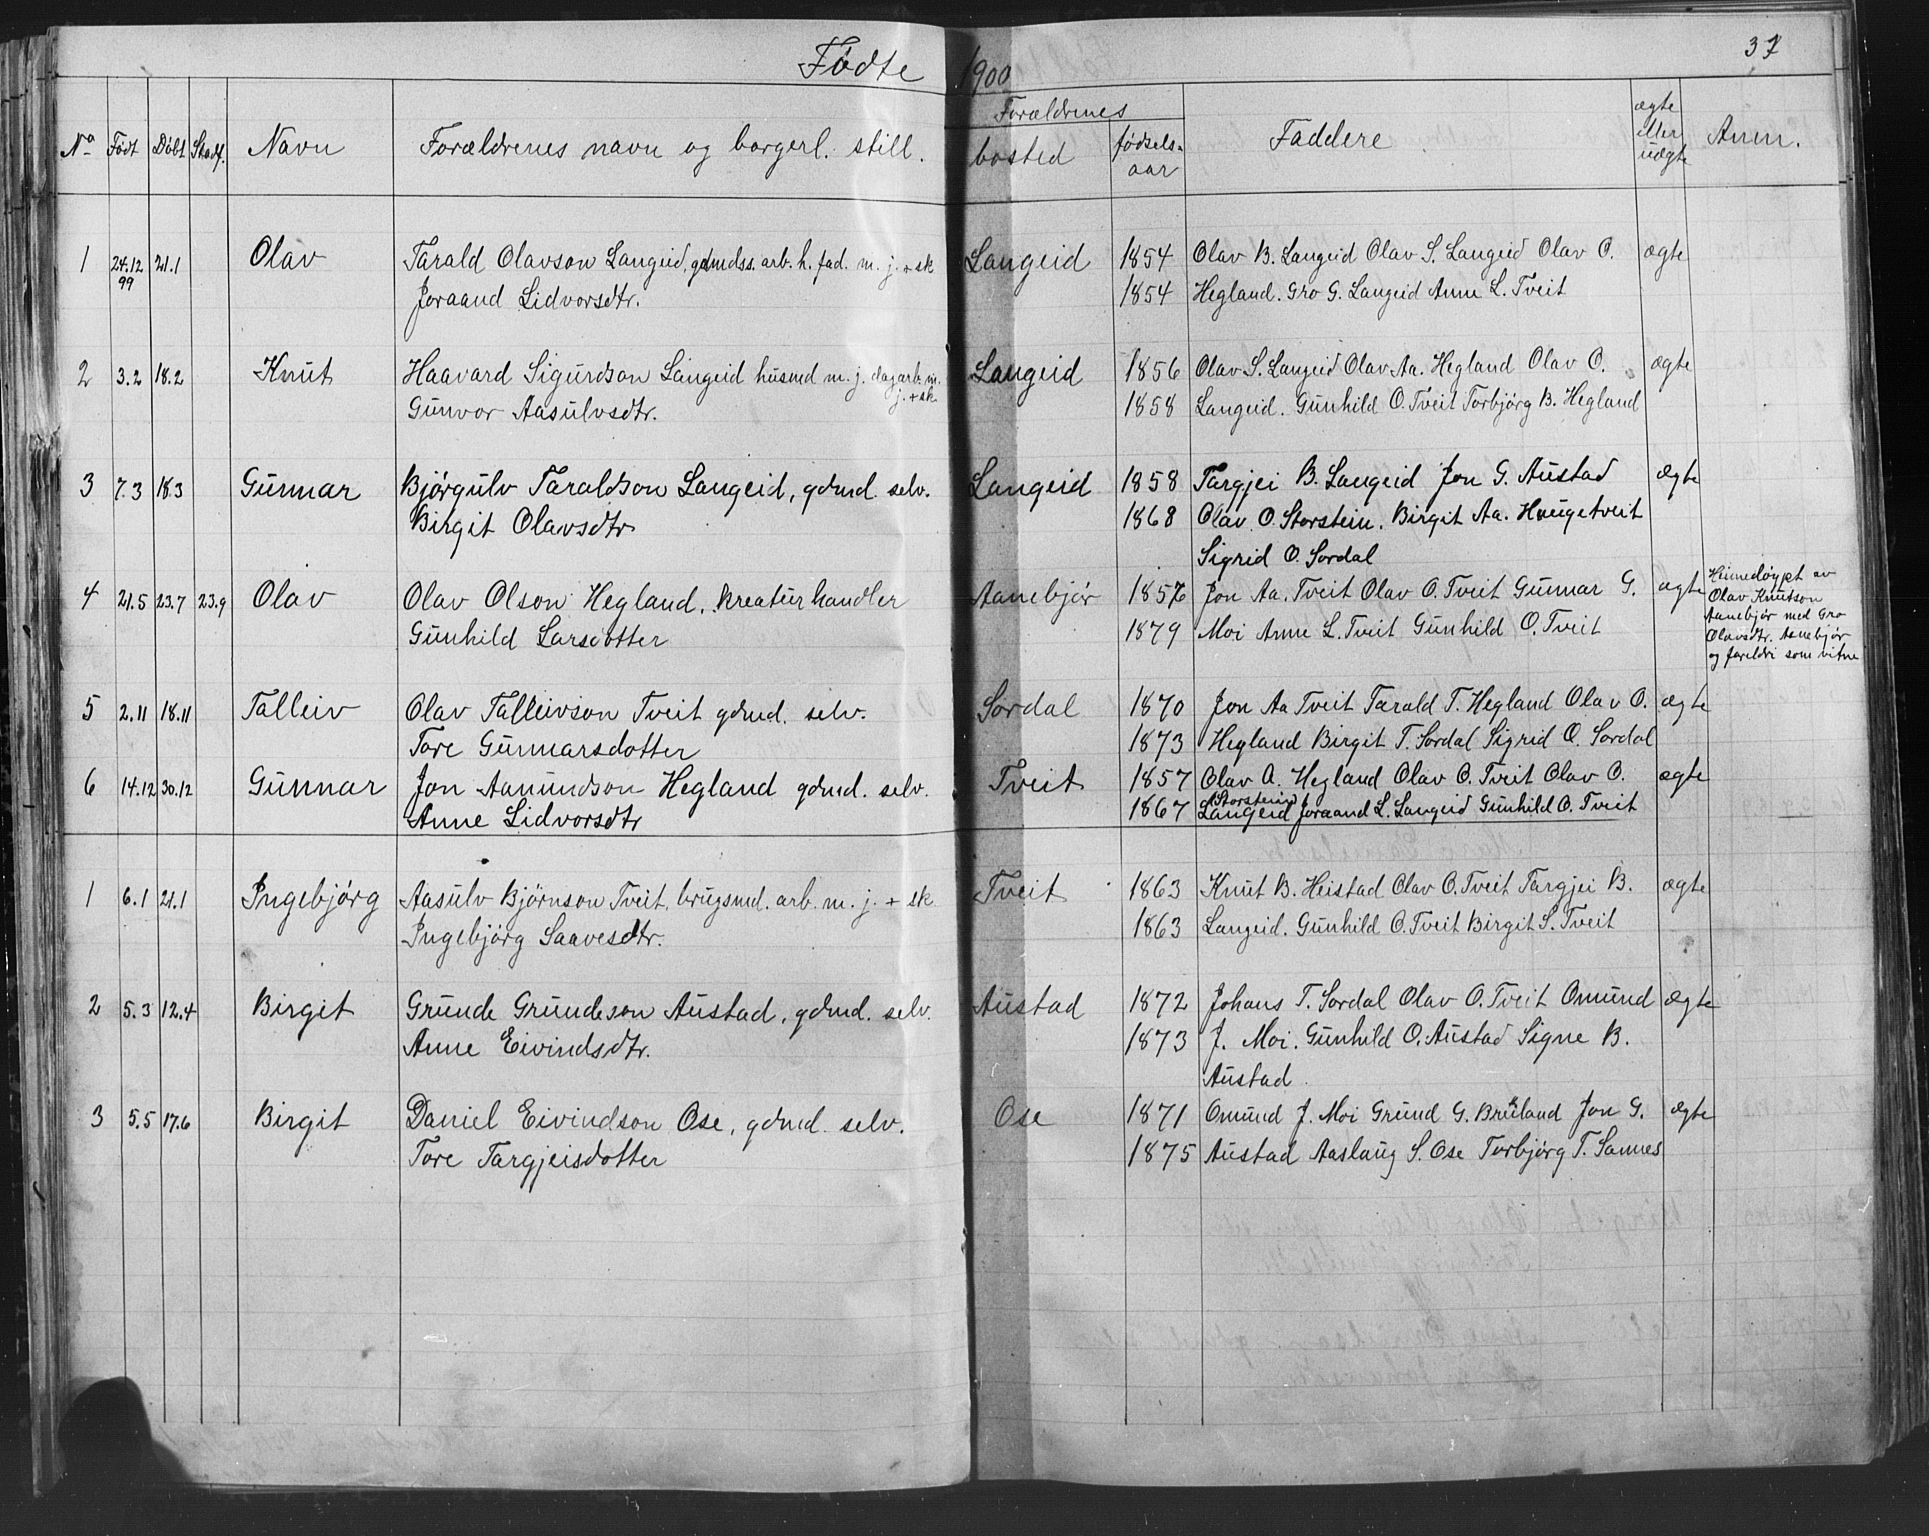 Fødte 1900
37
No Født Døbt Stadf. Navn Forældrenes navn og borgerl. still. Forældrenes bosted fødsels-aar Faddere ægte eller uægte Anm.
1 24.12 99 21.1 Olav Tarald Olavson Langeid, gdmdss. arb. h. fad. m. j. + sk Langeid 1854 Olav B. Langeid Olav S. Langeid Olav O. ægte
Joraand Lidvorsdtr. 1854 Hegland. Gro G. Langeid Anne L. Tveit
2 3.2 18.2 Knut Haavard Sigurdson Langeid husmd m. j. dagarb. m. j. + sk. Langeid 1856 Olav S. Langeid Olav Aa. Hegland Olav O. ægte
Gunvor Aasulvsdtr. 1858 Langeid. Gunhild O. Tveit Torbjørg B. Hegland
3 7.3 18.3 Gunnar Bjørgulv Taraldson Langeid, gdmd. selv. Langeid 1858 Targjei B. Langeid Jon G. Austad ægte
Birgit Olavsdtr 1868 Olav O. Storstein. Birgit Aa. Haugetveit
Sigrid O. Sordal
4 21.5 23.7 23.9 Olav Olav Olson Hegland, kreaturhandler Aanebjør 1857 Jon Aa. Tveit Olav O. Tveit Gunnar G. ægte
Gunhild Larsdotter 1879 Moi Anne L. Tveit Gunhild O. Tveit
Heimedøypt av
Olav Knutson
Aanebjør med Gro
Olavsdtr. Aanebjør
og foreldri som vitne
5 2.11 18.11 Talleiv Olav Talleivson Tveit gdmd. selv. Sordal 1870 Jon Aa Tveit Tarald T. Hegland Olav O. ægte
Tore Gunnarsdotter 1873 Hegland Birgit T. Sordal Sigrid O. Sordal
6 14.12 30.12 Gunnar Jon Aamundson Hegland gdmd. selv. Tveit 1857 Olav A. Hegland Olav O. Tveit Olav O. ægte
Anne Lidvorsdtr 1867 (Storstein) Langeid Joraand L. Langeid Gunhild O. Tveit
1 6.1 21.1 Ingebjørg Aasulv Bjørnson Tveit, brugsmd. arb. m. j. + sk. Tveit 1863 Knut B. Heistad Olav O. Tveit Targjei B. ægte
Ingebjørg Saavesdtr. 1863 Langeid. Gunhild O. Tveit Birgit S. Tveit
2 5.3 12.4 Birgit Grunde Grundeson Austad, gdmd. selv. Austad 1872 Johans T. Sordal Olav O. Tveit Omund ægte
Anne Eivindsdtr. 1873 J. Moi. Gunhild O. Austad Signe B.
Austad
3 5.5 17.6 Birgit Daniel Eivindson Ose, gdmd. selv. Ose 1871 Omund J. Moi Grund G. Breiland Jon G. ægte
Tore Targjeisdotter 1875 Austad Aaslaug S. Ose Torbjørg T. Sannes